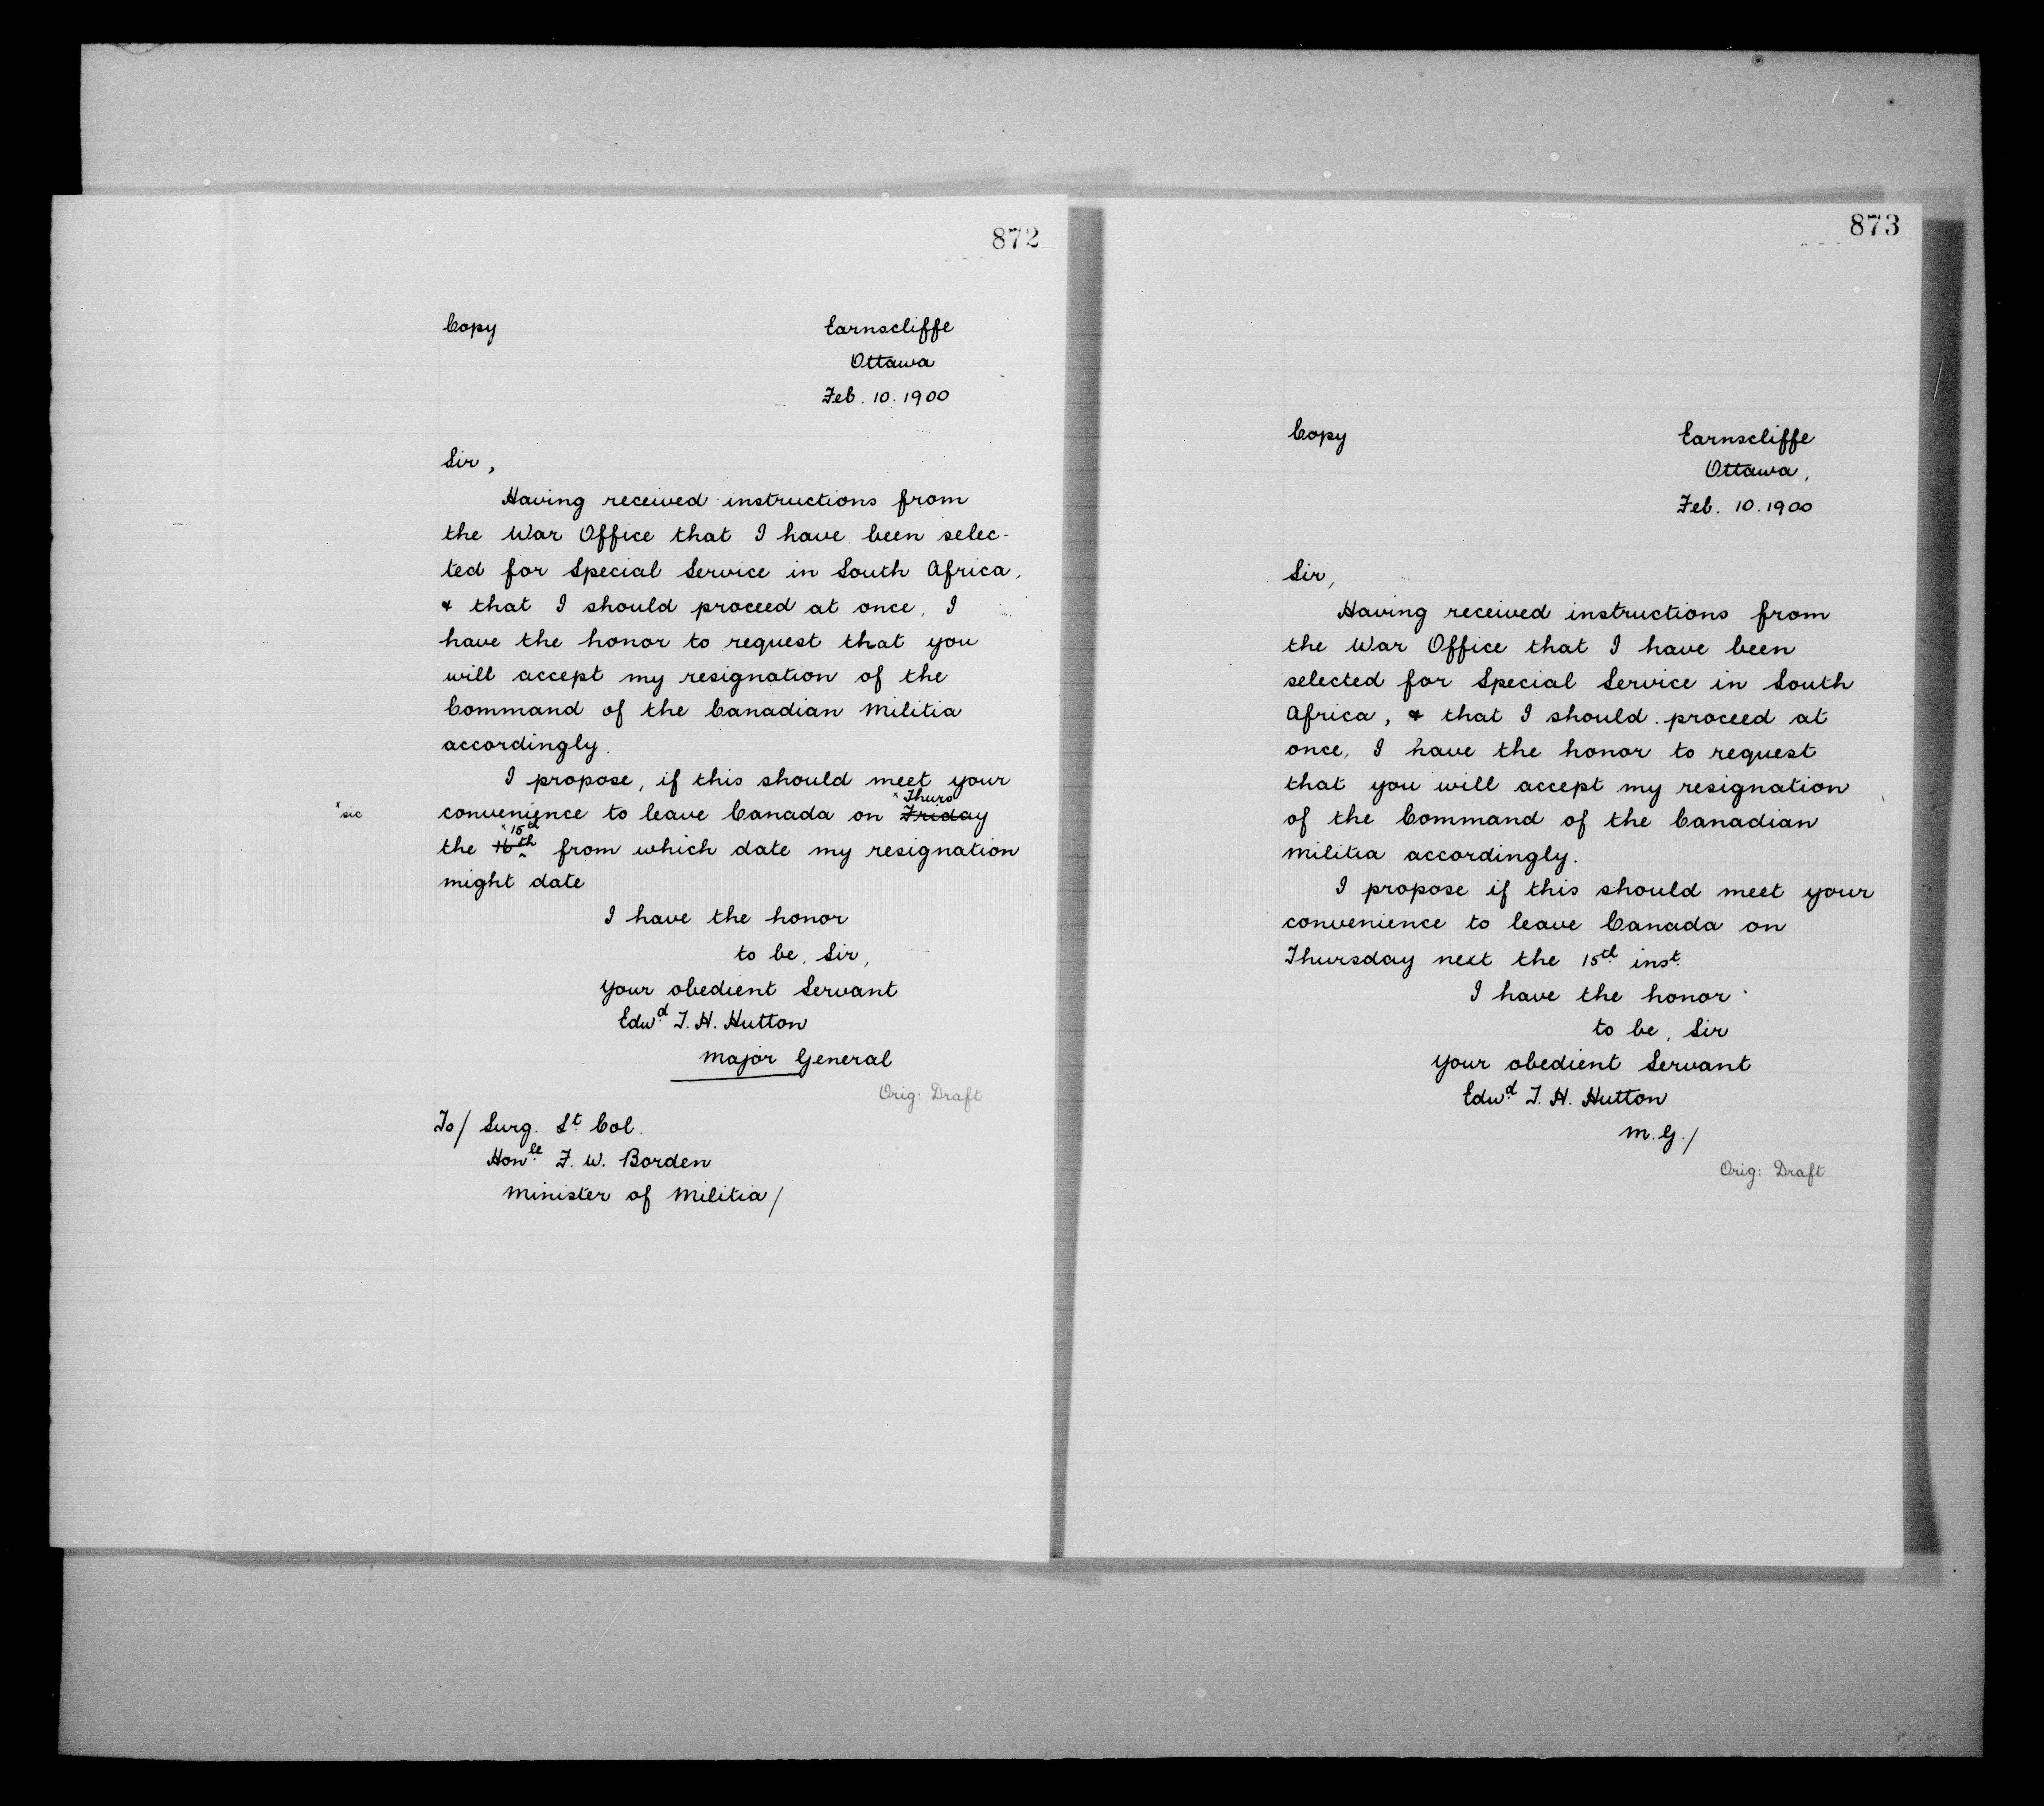 872
Copy
Earnscliffe
Ottawa
Feb. 10. 1900
Sir,
Having received instructions from
the War Office that I have been selec-
ted for Special Service in South Africa,
& that I should proceed at once, I
have the honor to request that you
will accept my resignation of the
Command of the Canadian Militia
accordingly.
I propose, if this should meet your
x Thurs
x sic
convenience to leave Canada on Friday
x 15th
the 16th from which date my resignation
might date
I have the honor
to be, Sir,
Your obedient Servant
Edwd T. H. Hutton
Major General
Orig: Draft
To/ Surg. Lt Col.
Honble F. W. Borden
Minister of Militia/
873
Copy
Earnscliffe
Ottawa,
Feb. 10. 1900
Sir,
Having received instructions from
the War Office that I have been
selected for Special Service in South
Africa, & that I should proceed at
once, I have the honor to request
that you will accept my resignation
of the Command of the Canadian
Militia accordingly.
I propose if this should meet your
convenience to leave Canada on
Thursday next the 15th inst.
I have the honor
to be, Sir
Your obedient Servant
Edwd T. H. Hutton
M.G./
Orig: Draft